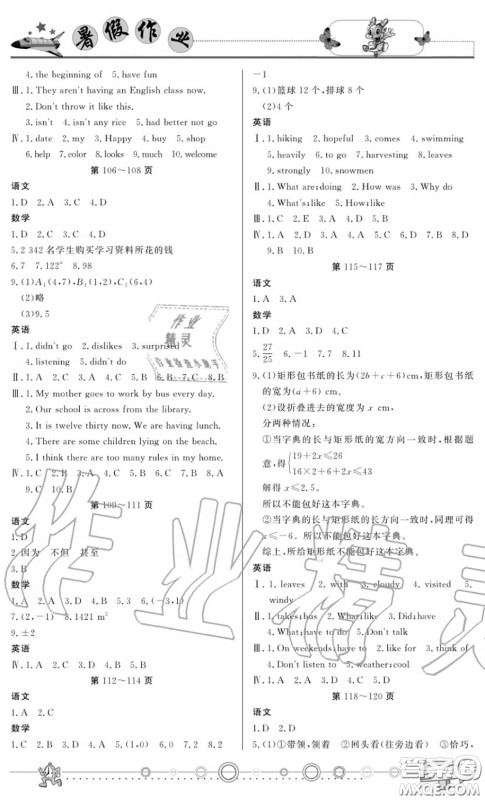 暑假作业
4. the beginning of  5. have fun
Ⅲ. 1. They aren't having an English class now.
2. Don't throw it like this.
3. isn't  4. isn't any rice  5. had better not go
Ⅳ. 1. date  2. my  3. Happy  4. buy  5. shop
6. help  7. color  8. looks  9. much  10. welcome
第 106～108 页
语文
1. D  2. A  3. C  4. D
数学
5. 2 342 名学生购买学习资料所花的钱
6. 7  7. 122°  8. 98
9. (1)A₁(4,7), B₁(1,2), C₂(6,4)
(2)略
(3)9.5
英语
Ⅱ. 1. didn't go  2. dislikes  3. surprised
4. listening  5. didn't do  6. B  7. C  8. B
Ⅲ. 1. My mother goes to work by bus every day.
2. Our school is across from the library.
3. It is twelve thirty now. We are having lunch.
4. There are some children lying on the beach.
5. I think there are too many rules in my home.
Ⅳ. 1. C  2. D  3. A  4. C  5. D  6. A  7. B  8. A
9. C  10. B
第 109～111 页
语文
1. D
2. 因为  不但  甚至
3. B
数学
1. A  2. A  3. D  4. B  5. 3  6. (-3,1)
7. (2,-1)  8. 1421 m²
9. ±2
英语
Ⅳ. 1. A  2. C  3. B  4. D  5. D
第 112～114 页
语文
1. A  2. C
数学
1. C  2. B  3. B  4. C  5. 1  6. 0  7. 0.2  8. 2
-1
9. (1)篮球 12 个，排球 8 个
(2)4 个
英语
Ⅰ. 1. hiking  2. hopeful  3. comes  4. swimming
5. heavily  6. to go  7. harvesting  8. leaves
9. strongly  10. snowmen
Ⅱ. 1. What are;doing  2. How was  3. Why do
4. What's;like  5. How;like
Ⅲ. 1. C  2. E  3. D  4. A  5. B
Ⅳ. 1. C  2. A  3. B  4. D  5. D  6. A  7. C  8. D
9. B  10. B
第 115～117 页
语文
1. A  3. A
数学
1. D  2. A  3. D  4. D
5. 27/25  6. -1  7. 7  8. 11
9. (1)矩形包书纸的长为(2b+c+6)cm，矩形包书纸
的宽为(a+6)cm。
(2)设折叠进去的宽度为 x cm，
分两种情况：
①当字典的长与矩形纸的宽方向一致时，根据题
意，得{19+2x≤26
16×2+6+2x≤43
解得 x≤2.5。
所以不能包好这本字典。
②当字典的长与矩形纸的长方向一致时，同理可得
x≤-6。所以不能包好这本字典。
综上，所给矩形纸不能包好这本字典。
英语
Ⅰ. 1. leaves  2. with  3. cloudy  4. visited  5.
windy
Ⅱ. 1. takes;bus  2. What;like  3. Did;have
4. What;have to do  5. Don't talk
Ⅲ. 1. On weekends;have to  2. for  3. like  4. think of
4. Didn't listen to  5. weather;cool
Ⅳ. 1. A  2. D  3. C  4. B  5. D
第 118～120 页
语文
1. D  2. D
5. (1)带领，领着  ②回头看(往旁边看)  ③恰巧，